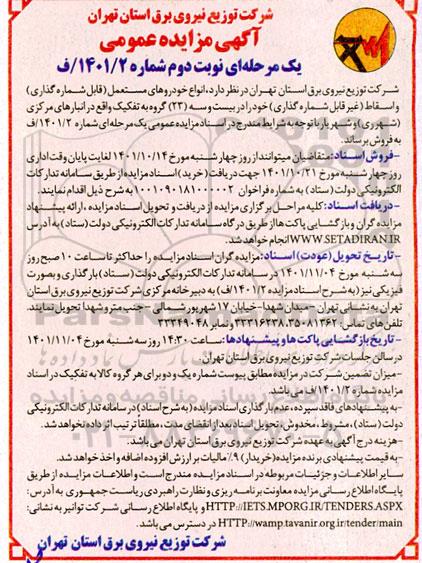 شرکت توزیع نیروی برق استان تهران
آگهی مزایده عمومی
یک مرحله‌ای نوبت دوم شماره ۱۴۰۱/۲/ف
شرکت توزیع نیروی برق استان تهران در نظر دارد، انواع خودروهای مستعمل (قابل شماره گذاری)
و اسقاط (غیر قابل شماره گذاری) خود را در بیست و سه (۲۳) گروه به تفکیک واقع در انبارهای مرکزی
(شهرری) و شهریار با توجه به شرایط مندرج در اسناد مزایده عمومی یک مرحله‌ای شماره ۱۴۰۱/۲/ف
به فروش برساند.
-فروش اسناد: متقاضیان میتوانند از روز چهارشنبه مورخ ۱۴۰۱/۱۰/۱۴ لغایت پایان وقت اداری
روز چهارشنبه مورخ ۱۴۰۱/۱۰/۲۱ جهت دریافت (خرید) اسناد مزایده از طریق سامانه تدارکات
الکترونیکی دولت (ستاد) به شماره فراخوان ۱۰۰۱۰۹۰۱۸۱۰۰۰۰۰۲ به شرح ذیل اقدام نمایند.
-دریافت اسناد: کلیه مراحل برگزاری مزایده از دریافت و تحویل اسناد مزایده، ارائه پیشنهاد
مزایده گران و بازگشایی پاکت ها از طریق درگاه سامانه تدارکات الکترونیکی دولت (ستاد) به آدرس
WWW.SETADIRAN.IR انجام خواهد شد.
-تاریخ تحویل (عودت) اسناد: مزایده گران اسناد مزایده را حداکثر تا ساعت ۱۰ صبح روز
سه شنبه مورخ ۱۴۰۱/۱۱/۰۴ در سامانه تدارکات الکترونیکی دولت (ستاد) بارگذاری و بصورت
فیزیکی نیز (به شرح اسناد مزایده ۱۴۰۱/۲/ف) به دبیرخانه مرکزی شرکت توزیع نیروی برق استان
تهران به نشانی تهران - میدان شهدا-خیابان ۱۷ شهریور شمالی - جنب مترو شهدا تحویل نمایند.
تلفن های تماس: ۳۵۰۸۱۳۶۲، ۳۳۳۱۶۲۳۸ و نمابر ۳۳۳۴۹۰۴۸
-تاریخ بازگشایی پاکت ها و پیشنهادها: ساعت ۱۴:۳۰ روز سه شنبه مورخ ۱۴۰۱/۱۱/۰۴
در سالن جلسات شرکت توزیع نیروی برق استان تهران.
-میزان تضمین شرکت در مزایده مطابق پیوست شماره یک و دو برای هر گروه کالا به تفکیک در اسناد
مزایده شماره ۱۴۰۱/۲/ف می باشد.
-به پیشنهادهای فاقد سپرده، عدم بارگذاری اسناد مزایده (به شرح اسناد) در سامانه تدارکات الکترونیکی
دولت (ستاد)، مشروط، مخدوش، تحویل شده بعد از انقضای مدت، مطلقا ترتیب اثر داده نخواهد شد.
-هزینه درج آگهی به عهده شرکت توزیع نیروی برق استان تهران می باشد.
-به قیمت پیشنهادی برنده مزایده (خریدار) ۹٪ مالیات بر ارزش افزوده اضافه و اخذ خواهد شد.
سایر اطلاعات و جزئیات مربوطه در اسناد مزایده مندرج است و اطلاعات مزایده از طریق
پایگاه اطلاع رسانی مزایده معاونت برنامه ریزی و نظارت راهبردی ریاست جمهوری به آدرس:
HTTP://IETS.MPORG.IR/TENDERS.ASPX و پایگاه اطلاع رسانی شرکت توانیر به نشانی:
HTTP://wamp.tavanir.org.ir/tender/main در دسترس می باشد.
شرکت توزیع نیروی برق استان تهران